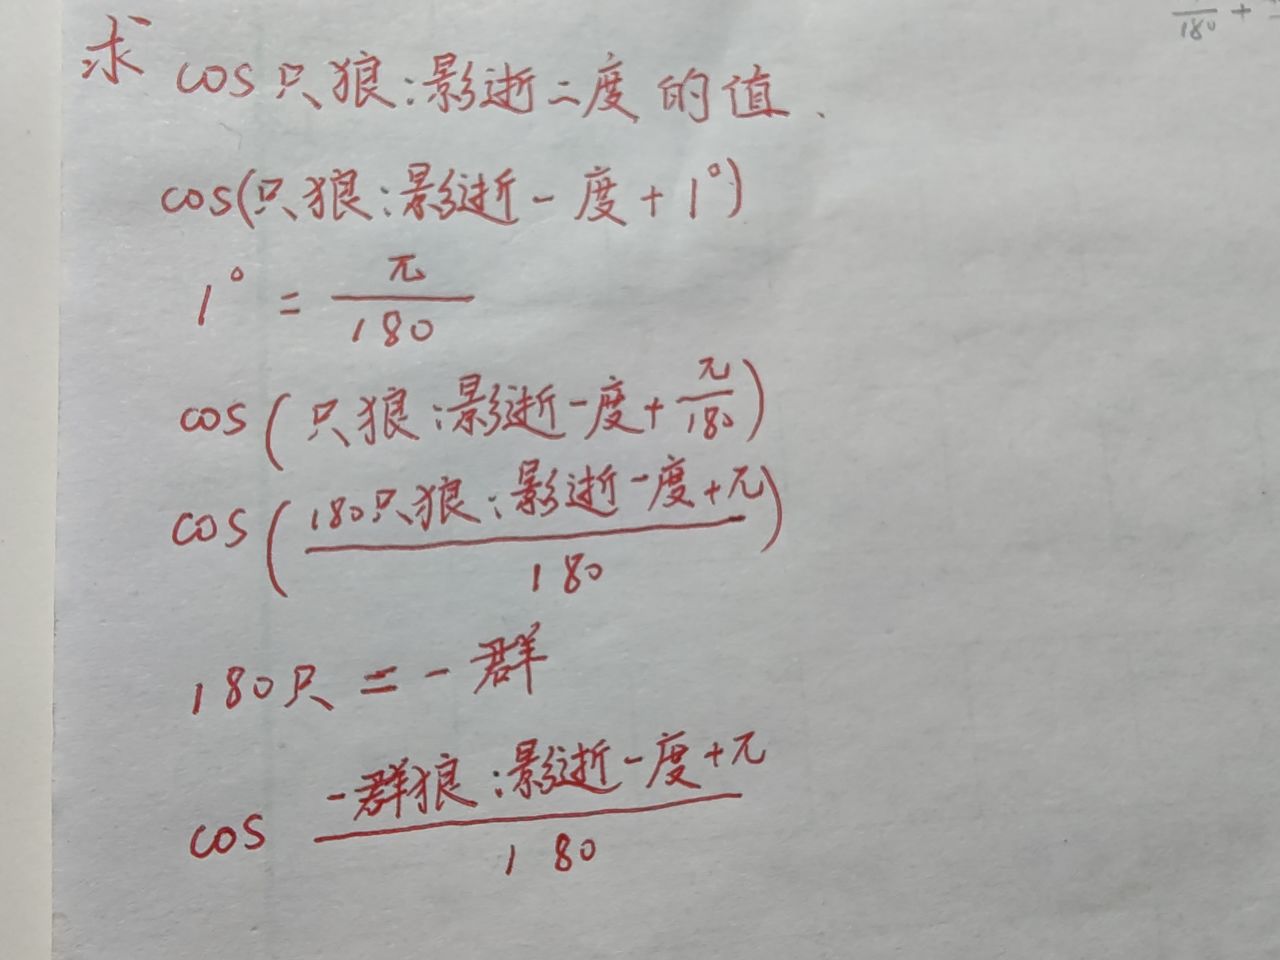 180 +
求 cos只狼:影逝二度的值.
cos(只狼:影逝一度+1°)
1° = π/180
cos(只狼:影逝一度+π/180)
cos(180只狼:影逝一度+π/180)
180只=一群
cos 一群狼:影逝一度+π/180